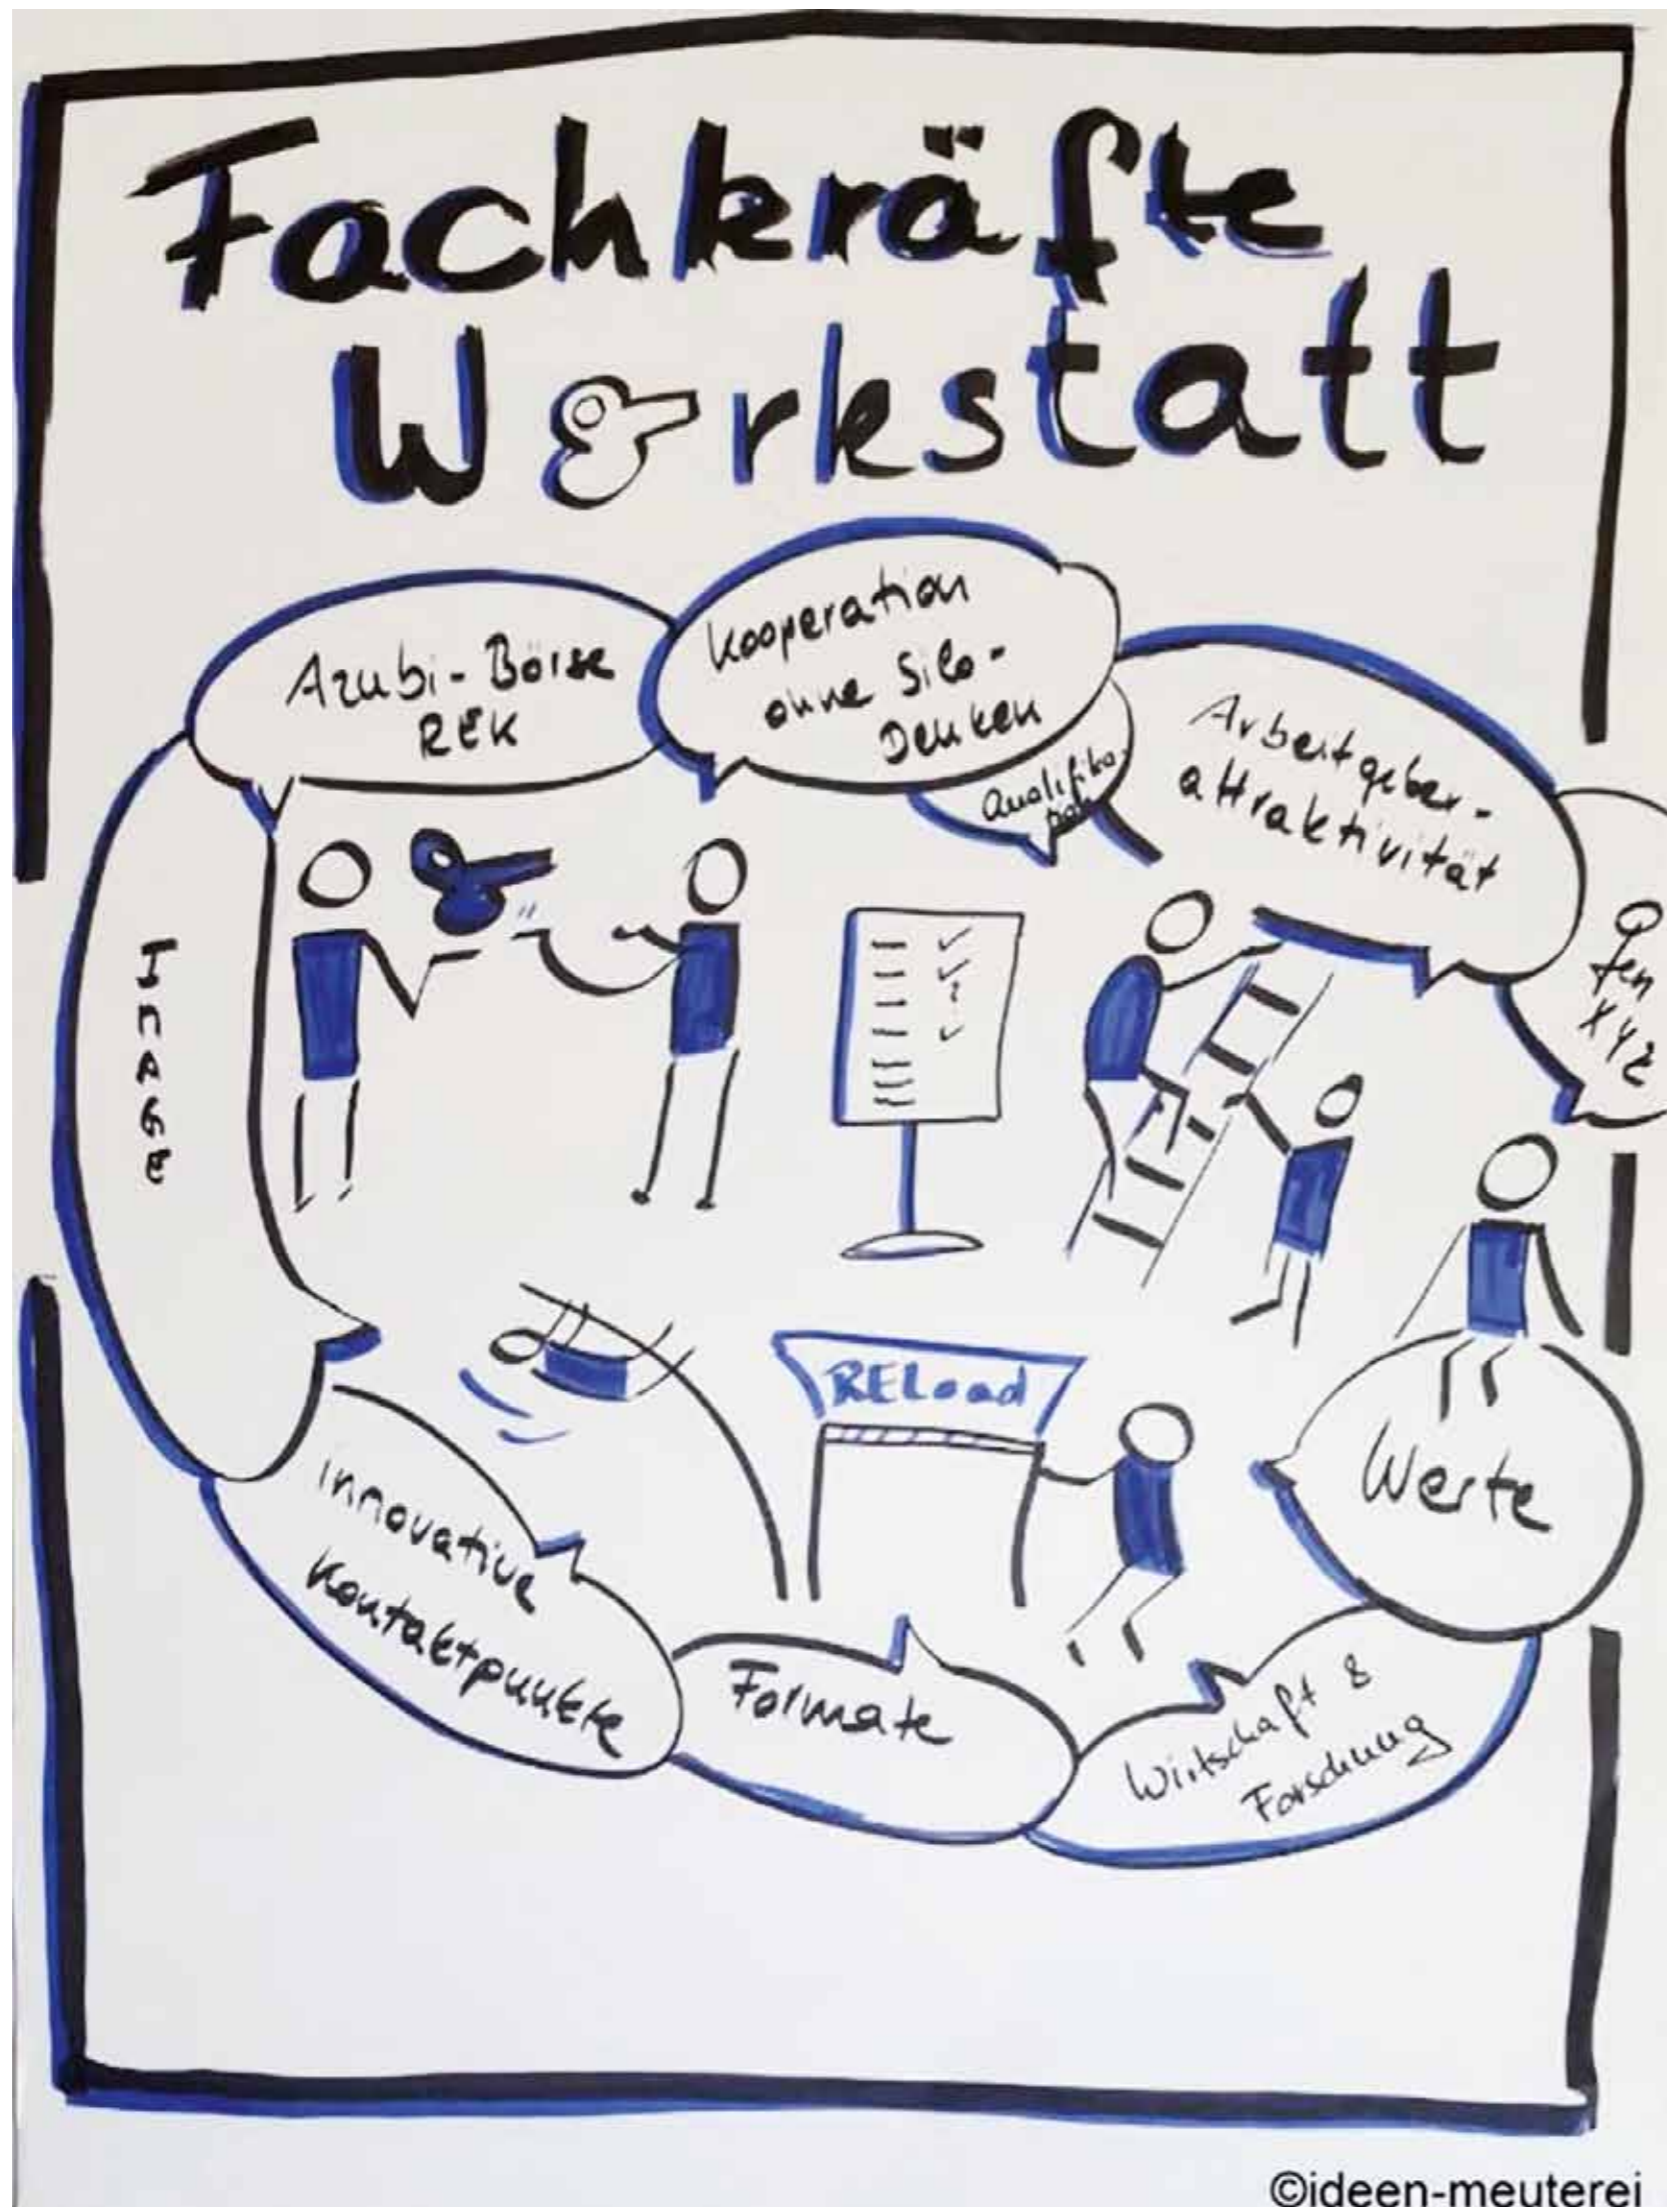 Fachkräfte
Werkstatt
Azubi-Börse
REK
Kooperation
ohne Silo-
Denken
Qualifika-
tion
Arbeitgeber-
attraktivität
XYZ
IMAGE
RELoad
Werte
innovative
Kontaktpunkte
Formate
Wirtschaft &
Forschung
©ideen-meuterei